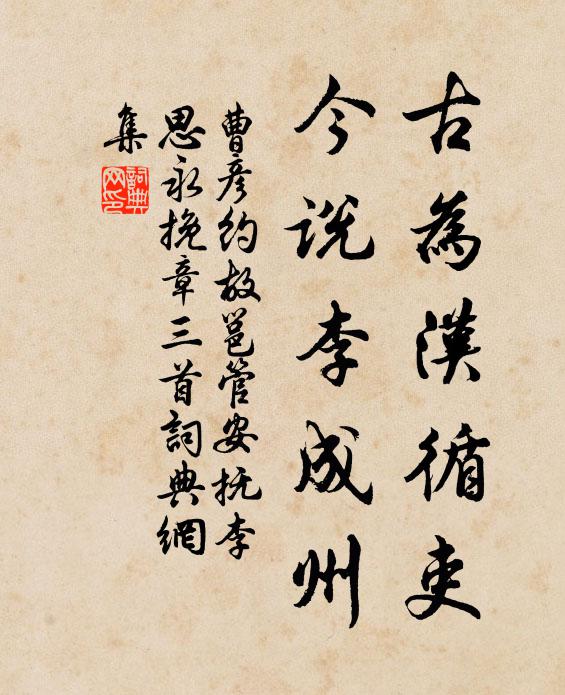 古為漢循吏
今說李成州
曹彦約故邕管安抚李
思永挽章三首詞典網
集
詞典
网印